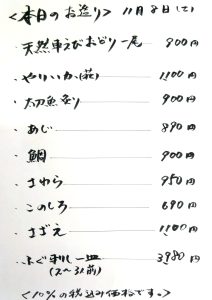 <本日のお造り> 11月8日(土)
天然車えびおどり一尾 900円
やりいか(萩) 1100円
太刀魚炙り 900円
あじ 890円
鯛 900円
さわら 950円
このしろ 690円
さざえ 1100円
ふぐ刺し一皿 3980円
(2〜3人前)
<10%の税込み価格です。>